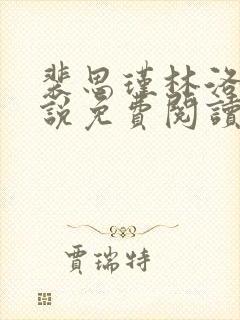 裴思瑾林洛
說免費閱讀
賈瑞特